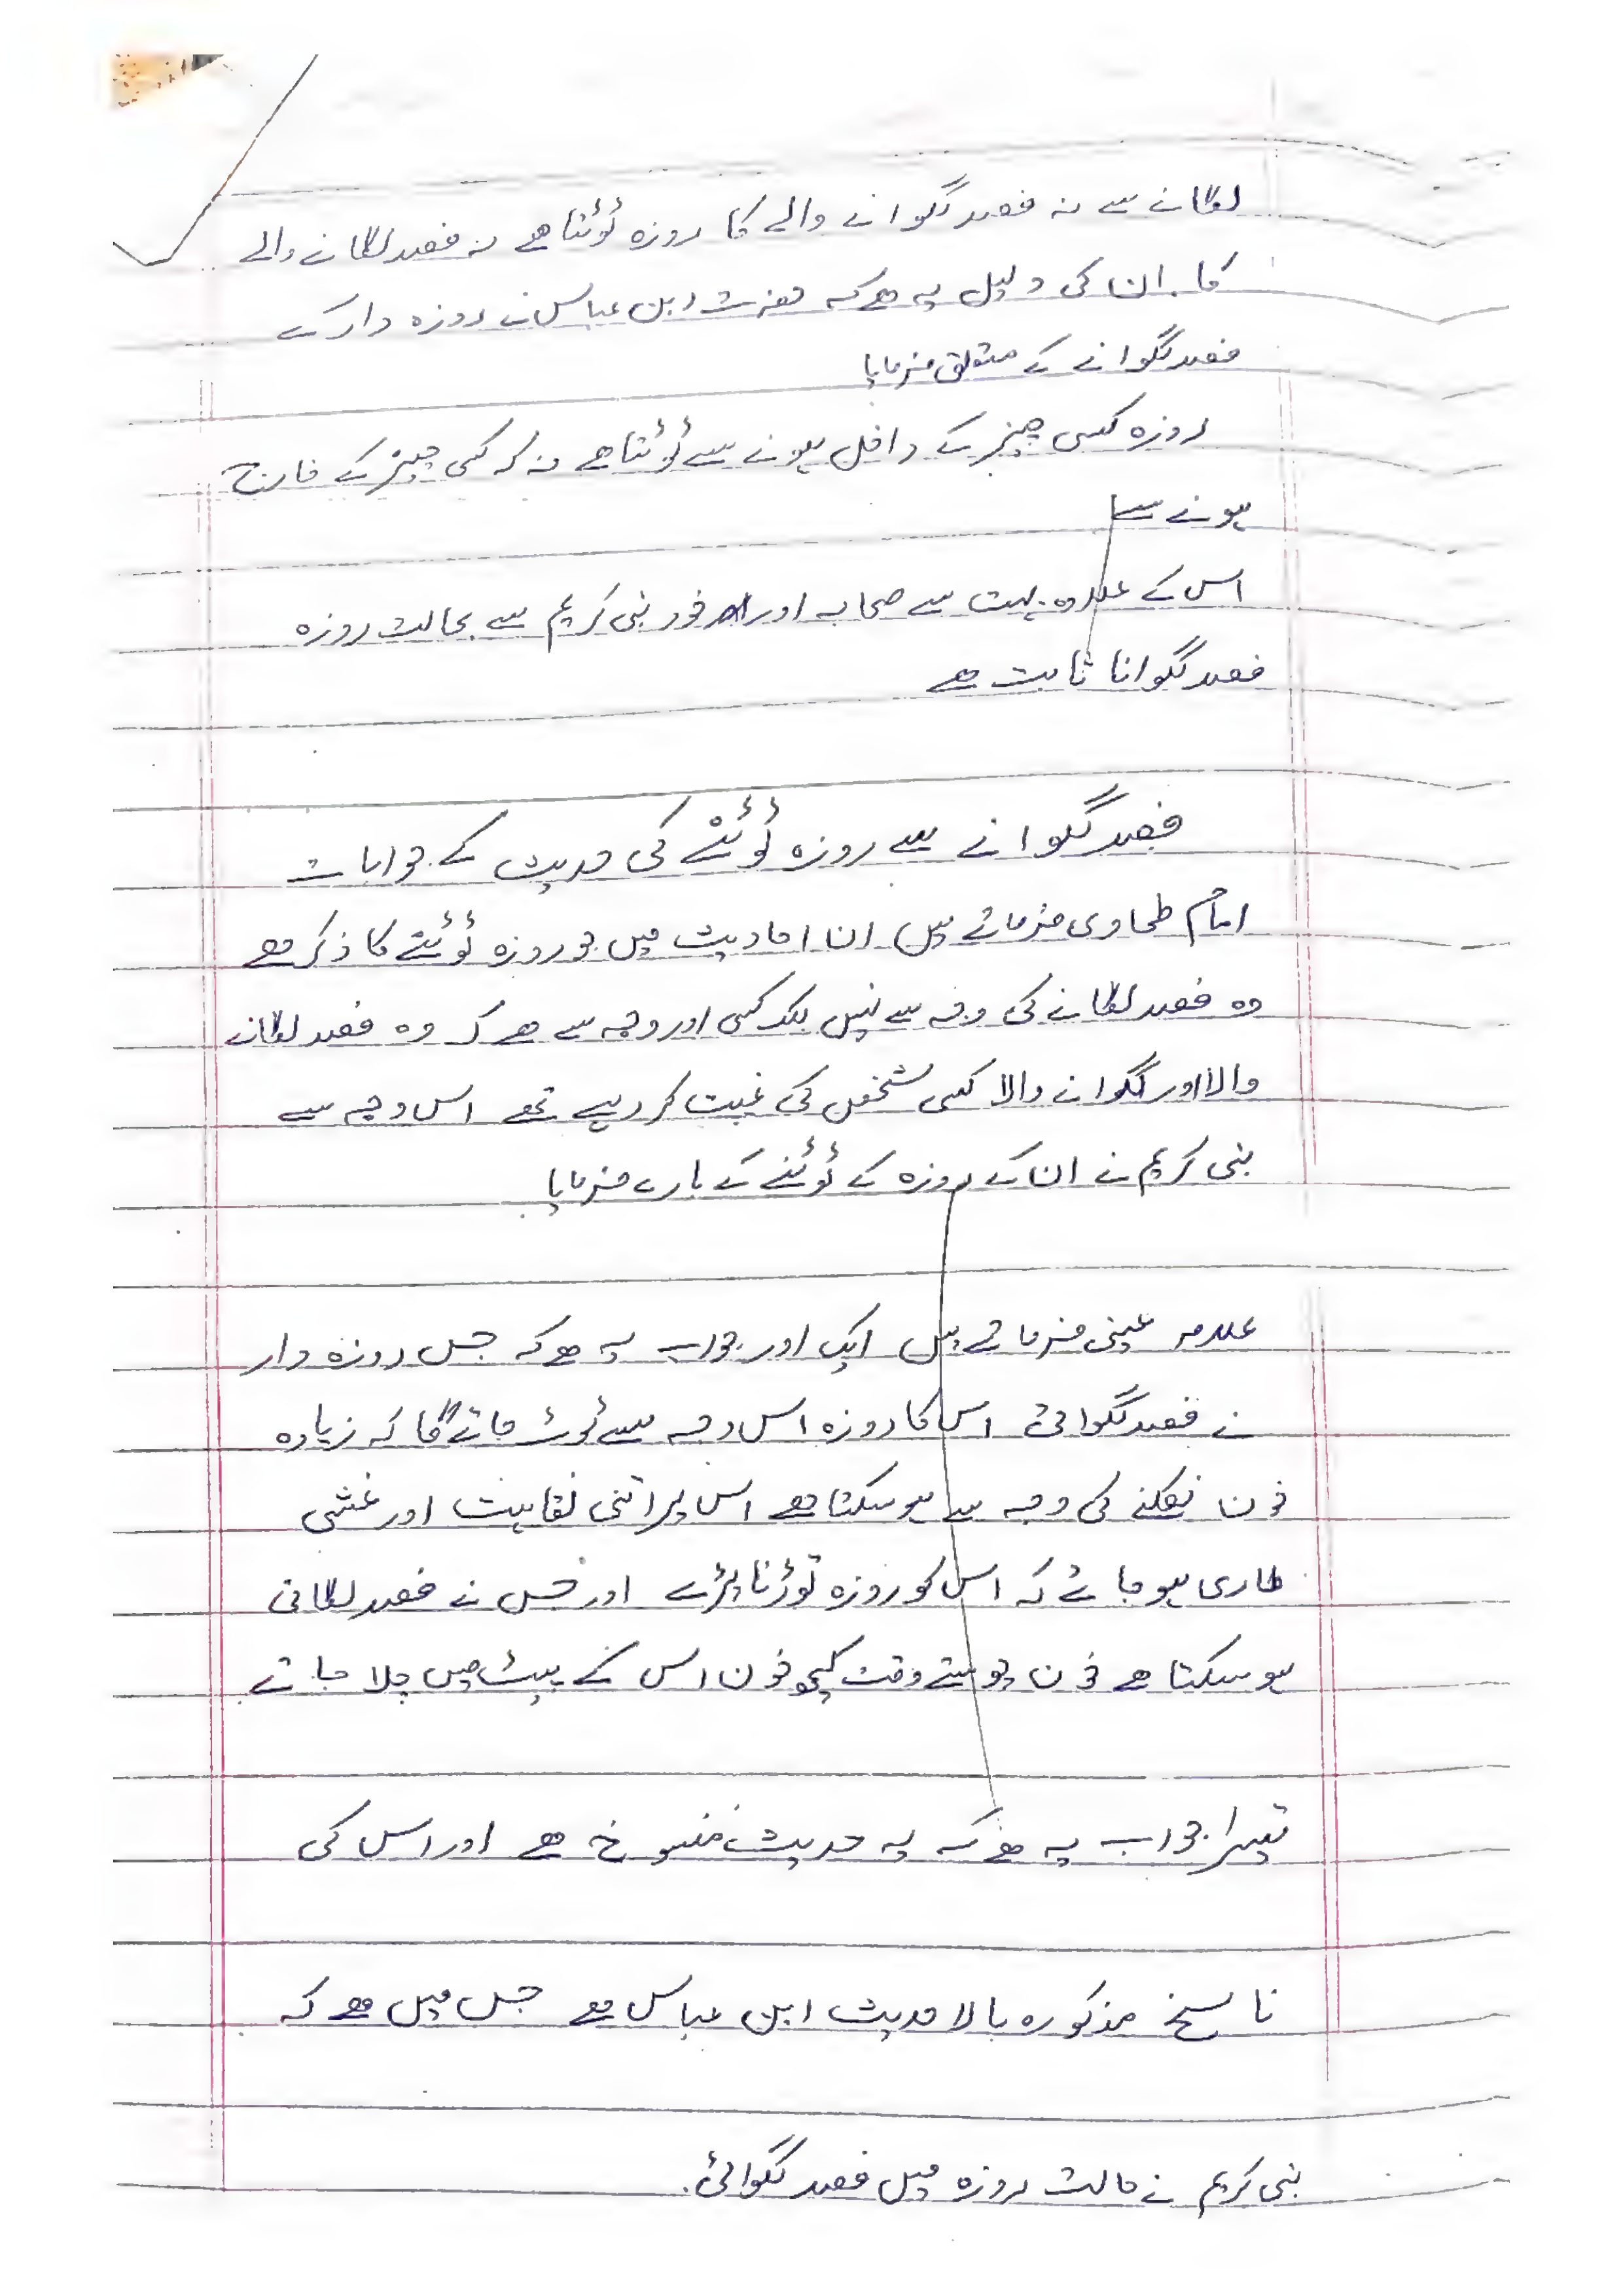 لگانے سے نہ فصد لگوانے والے کا روزہ ٹوٹتا ہے نہ فصد لگانے والے
کا۔ ان کی دلیل یہ ہے کہ حضرت ابن عباس نے روزہ دار کے
فصد لگوانے کے متعلق فرمایا
روزہ کسی چیز کے داخل ہونے سے ٹوٹتا ہے نہ کہ کسی چیز کے خارج
ہونے سے
اس کے علاوہ بہت سے صحابہ اور خود نبی کریم سے بحالت روزہ
فصد لگوانا ثابت ہے
فصد لگوانے سے روزہ ٹوٹنے کی حدیث کے جوابات
امام طحاوی فرماتے ہیں ان احادیث میں جو روزہ ٹوٹنے کا ذکر ہے
وہ فصد لگانے کی وجہ سے نہیں بلکہ کسی اور وجہ سے ہے کہ وہ فصد لگانے
والا اور لگوانے والا کسی شخص کی غیبت کر رہے تھے اس وجہ سے
نبی کریم نے ان کے روزہ کے ٹوٹنے کے بارے فرمایا
علامہ عینی فرماتے ہیں ایک اور جواب یہ ہے کہ جس روزہ دار
نے فصد لگوائی اس کا روزہ اس وجہ سے ٹوٹ جائے گا کہ زیادہ
خون نکلنے کی وجہ سے ہو سکتا ہے اس پر اتنی نقاہت اور غشی
طاری ہو جائے کہ اس کو روزہ توڑنا پڑے اور جس نے فصد لگائی
ہو سکتا ہے خون چوستے وقت کچھ خون اس کے پیٹ میں چلا جائے
تیسرا جواب یہ ہے کہ یہ حدیث منسوخ ہے اور اس کی
ناسخ مذکورہ بالا حدیث ابن عباس ہے جس میں ہے کہ
نبی کریم نے حالت روزہ میں فصد لگوائی۔